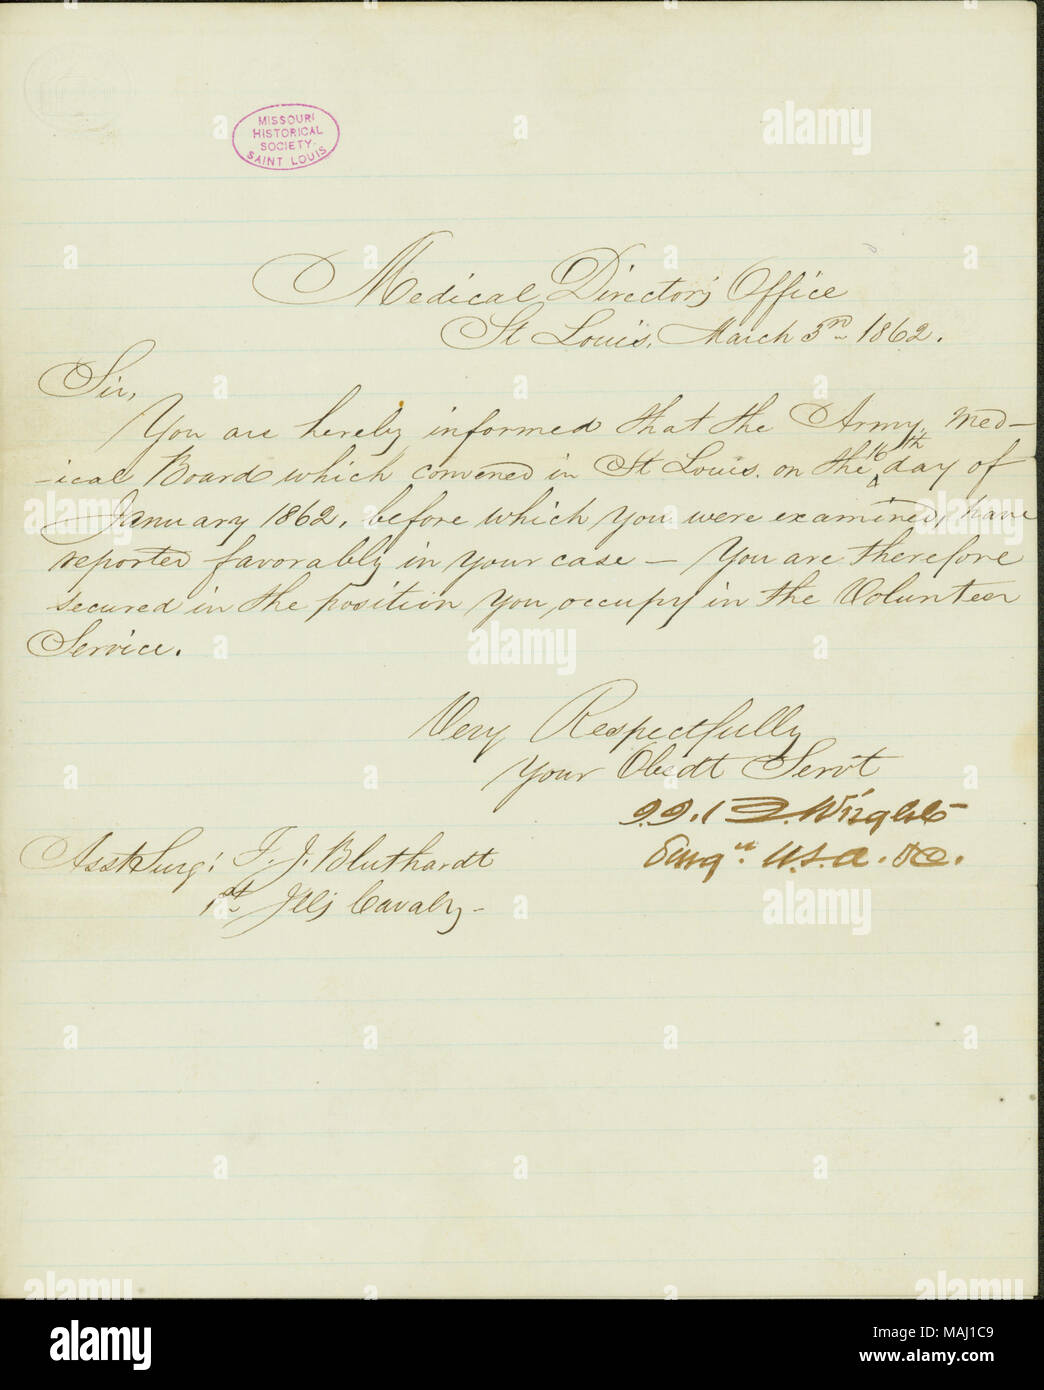 MISSOURI
HISTORICAL
SOCIETY.
SAINT LOUIS
Medical Director's Office
St Louis, March 3rd 1862.
Sir,
You are hereby informed that the Army Med-
-ical Board which convened in St Louis. on the 16th day of
January 1862, before which you were examined, have
reported favorably in your case — You are therefore
secured in the position you occupy in the Volunteer
Service.
Very Respectfully
Your Obedt Servt
Wright
Surgn U.S.A. &c.
Asst Surg: T. J. Bluthardt
1st Ills Cavalry -
alamy
Image ID: MAJ1C9
www.alamy.com